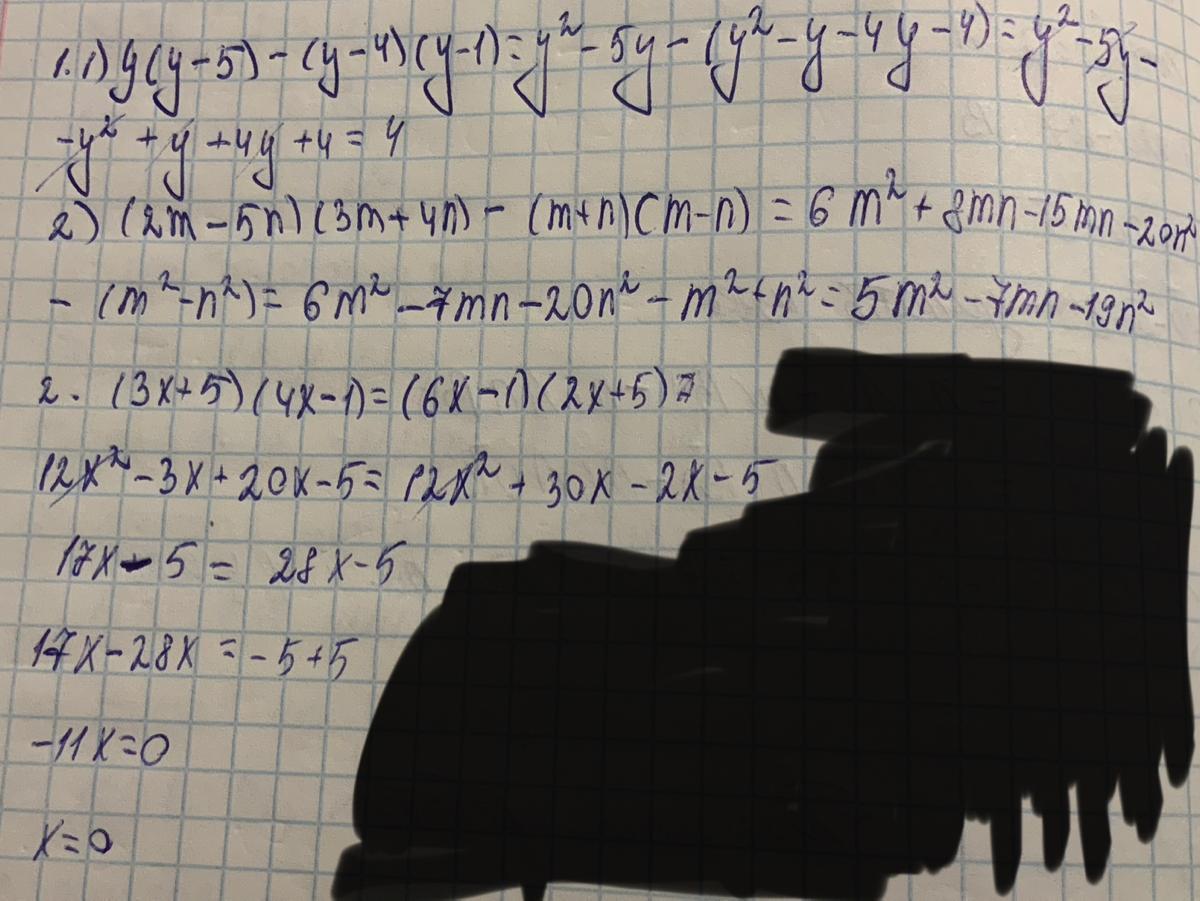 1. 1) y(y-5) - (y-4)(y-1) = y² - 5y - (y² - y - 4y - 4) = y² - 5y -
- y² + y + 4y + 4 = 4
2) (2m - 5n)(3m + 4n) - (m+n)(m-n) = 6m² + 8mn - 15mn - 20n²
- (m² - n²) = 6m² - 7mn - 20n² - m² + n² = 5m² - 7mn - 19n²
2. (3x+5)(4x-1) = (6x-1)(2x+5)
12x² - 3x + 20x - 5 = 12x² + 30x - 2x - 5
17x - 5 = 28x - 5
17x - 28x = -5 + 5
-11x = 0
x = 0